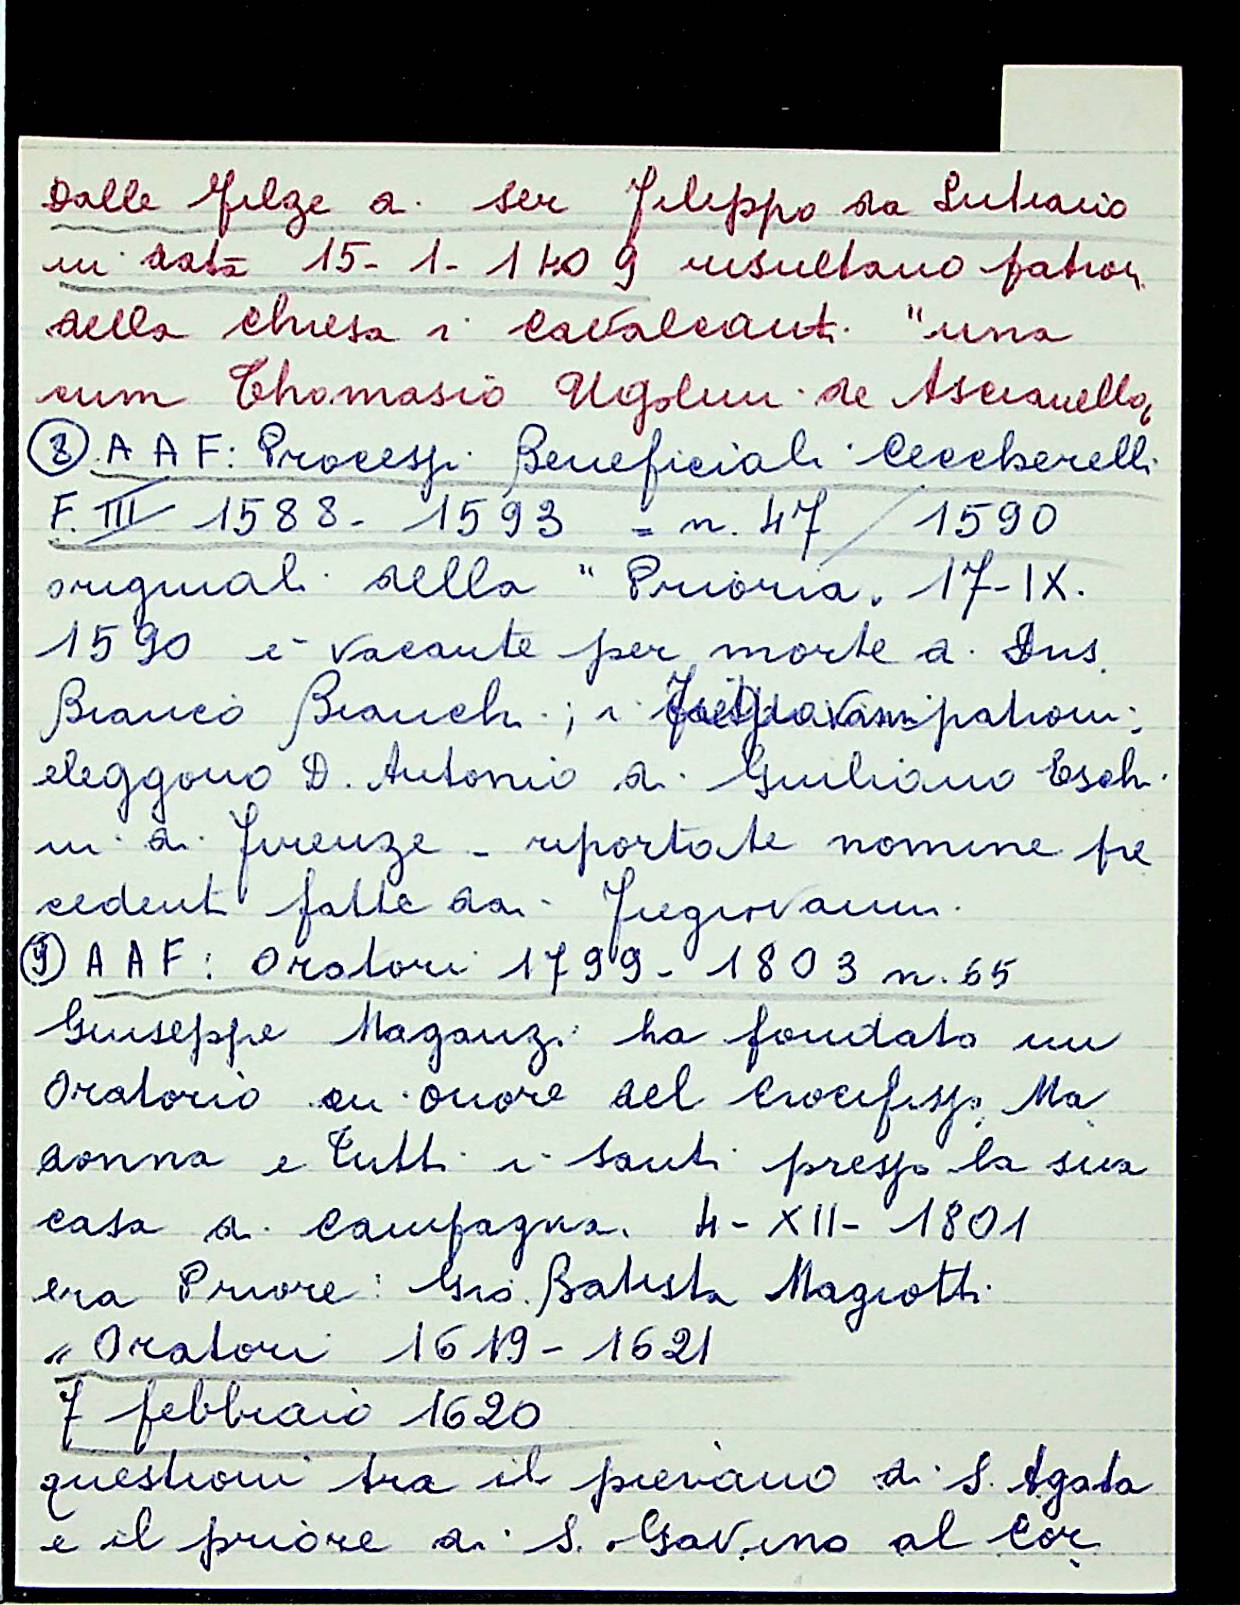 Dalle filze di ser Filippo da Lutiano
in data 15-1-1409 risultano patroni
della chiesa i Cavalcanti "una
cum Thomasio Ugolini de Ascianello„
⑧ AAF: Processi Beneficiali Ceccherelli
F. III 1588-1593 = n. 47 / 1590
originali della "Prioria„ 17-IX-
1590 è vacante per morte di Dns.
Bianco Bianchi; i patroni
eleggono D. Antonio di Giuliano Eschi
ni di Firenze - riportate nomine pre
cedenti fatte dai Fregiovanni.
⑨ AAF: Oratori 1799-1803 n. 65
Giuseppe Maganzi ha fondato un
Oratorio in onore del Crocifisso, Ma
donna e Tutti i Santi presso la sua
casa di campagna. 4-XII-1801
era Priore: Gio. Batista Magiotti.
" Oratori 1619-1621
7 febbraio 1620
questioni tra il pievano di S. Agata
e il priore di S. Gavino al Cor